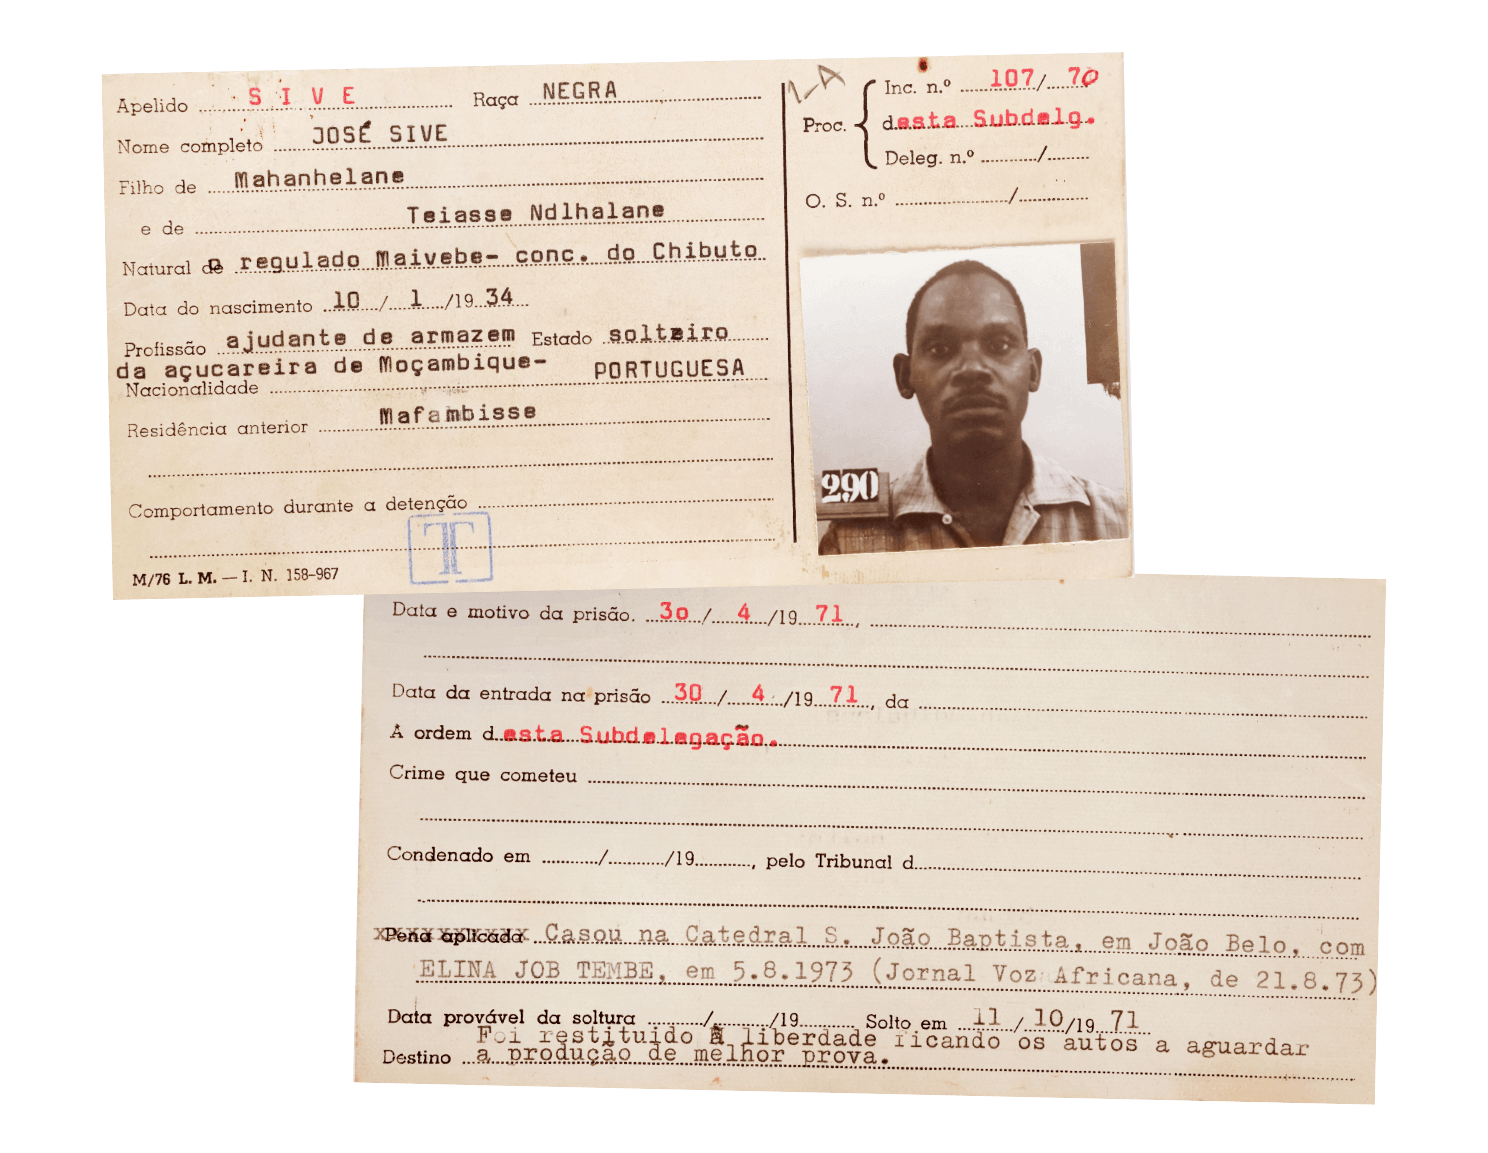 Apelido S I V E Raça NEGRA
Nome completo JOSÉ SIVE
Filho de Mahanhelane
e de Teiasse Ndlhalane
Natural de regulado Maivebe- conc. do Chibuto
Data do nascimento 10 / 1 /19 34
Profissão ajudante de armazem Estado solteiro
da açucareira de Moçambique-
Nacionalidade PORTUGUESA
Residência anterior Mafambisse
Comportamento durante a detenção
T
M/76 L. M. — I. N. 158-967
1-A
Proc. Inc. n.º 107/ 70
desta Subdelg.
Deleg. n.º /
O. S. n.º /
290
Data e motivo da prisão. 30/ 4 /19 71,
Data da entrada na prisão 30 / 4 /19 71, da
À ordem desta Subdelegação.
Crime que cometeu
Condenado em / /19 , pelo Tribunal d
xxxxxxxxxx Pena aplicada Casou na Catedral S. João Baptista, em João Belo, com
ELINA JOB TEMBE, em 5.8.1973 (Jornal Voz Africana, de 21.8.73)
Data provável da soltura / /19 Solto em 11 / 10/19 71
Foi restituido à liberdade ficando os autos a aguardar
Destino a produção de melhor prova.